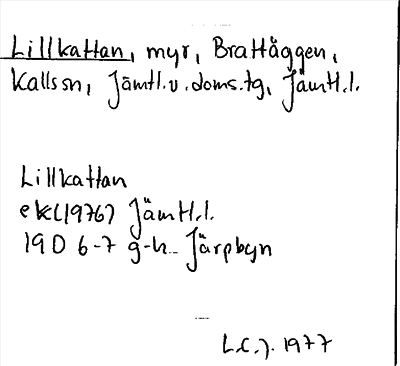 Lillkattan, myr, Brattåggen,
Kallssn, Jämtl.v.doms.tg, Jämtl.l.
Lillkattan
ek(1976) Jämtl.l.
19D 6-7 g-h Järpbyn
L.C.J. 1977